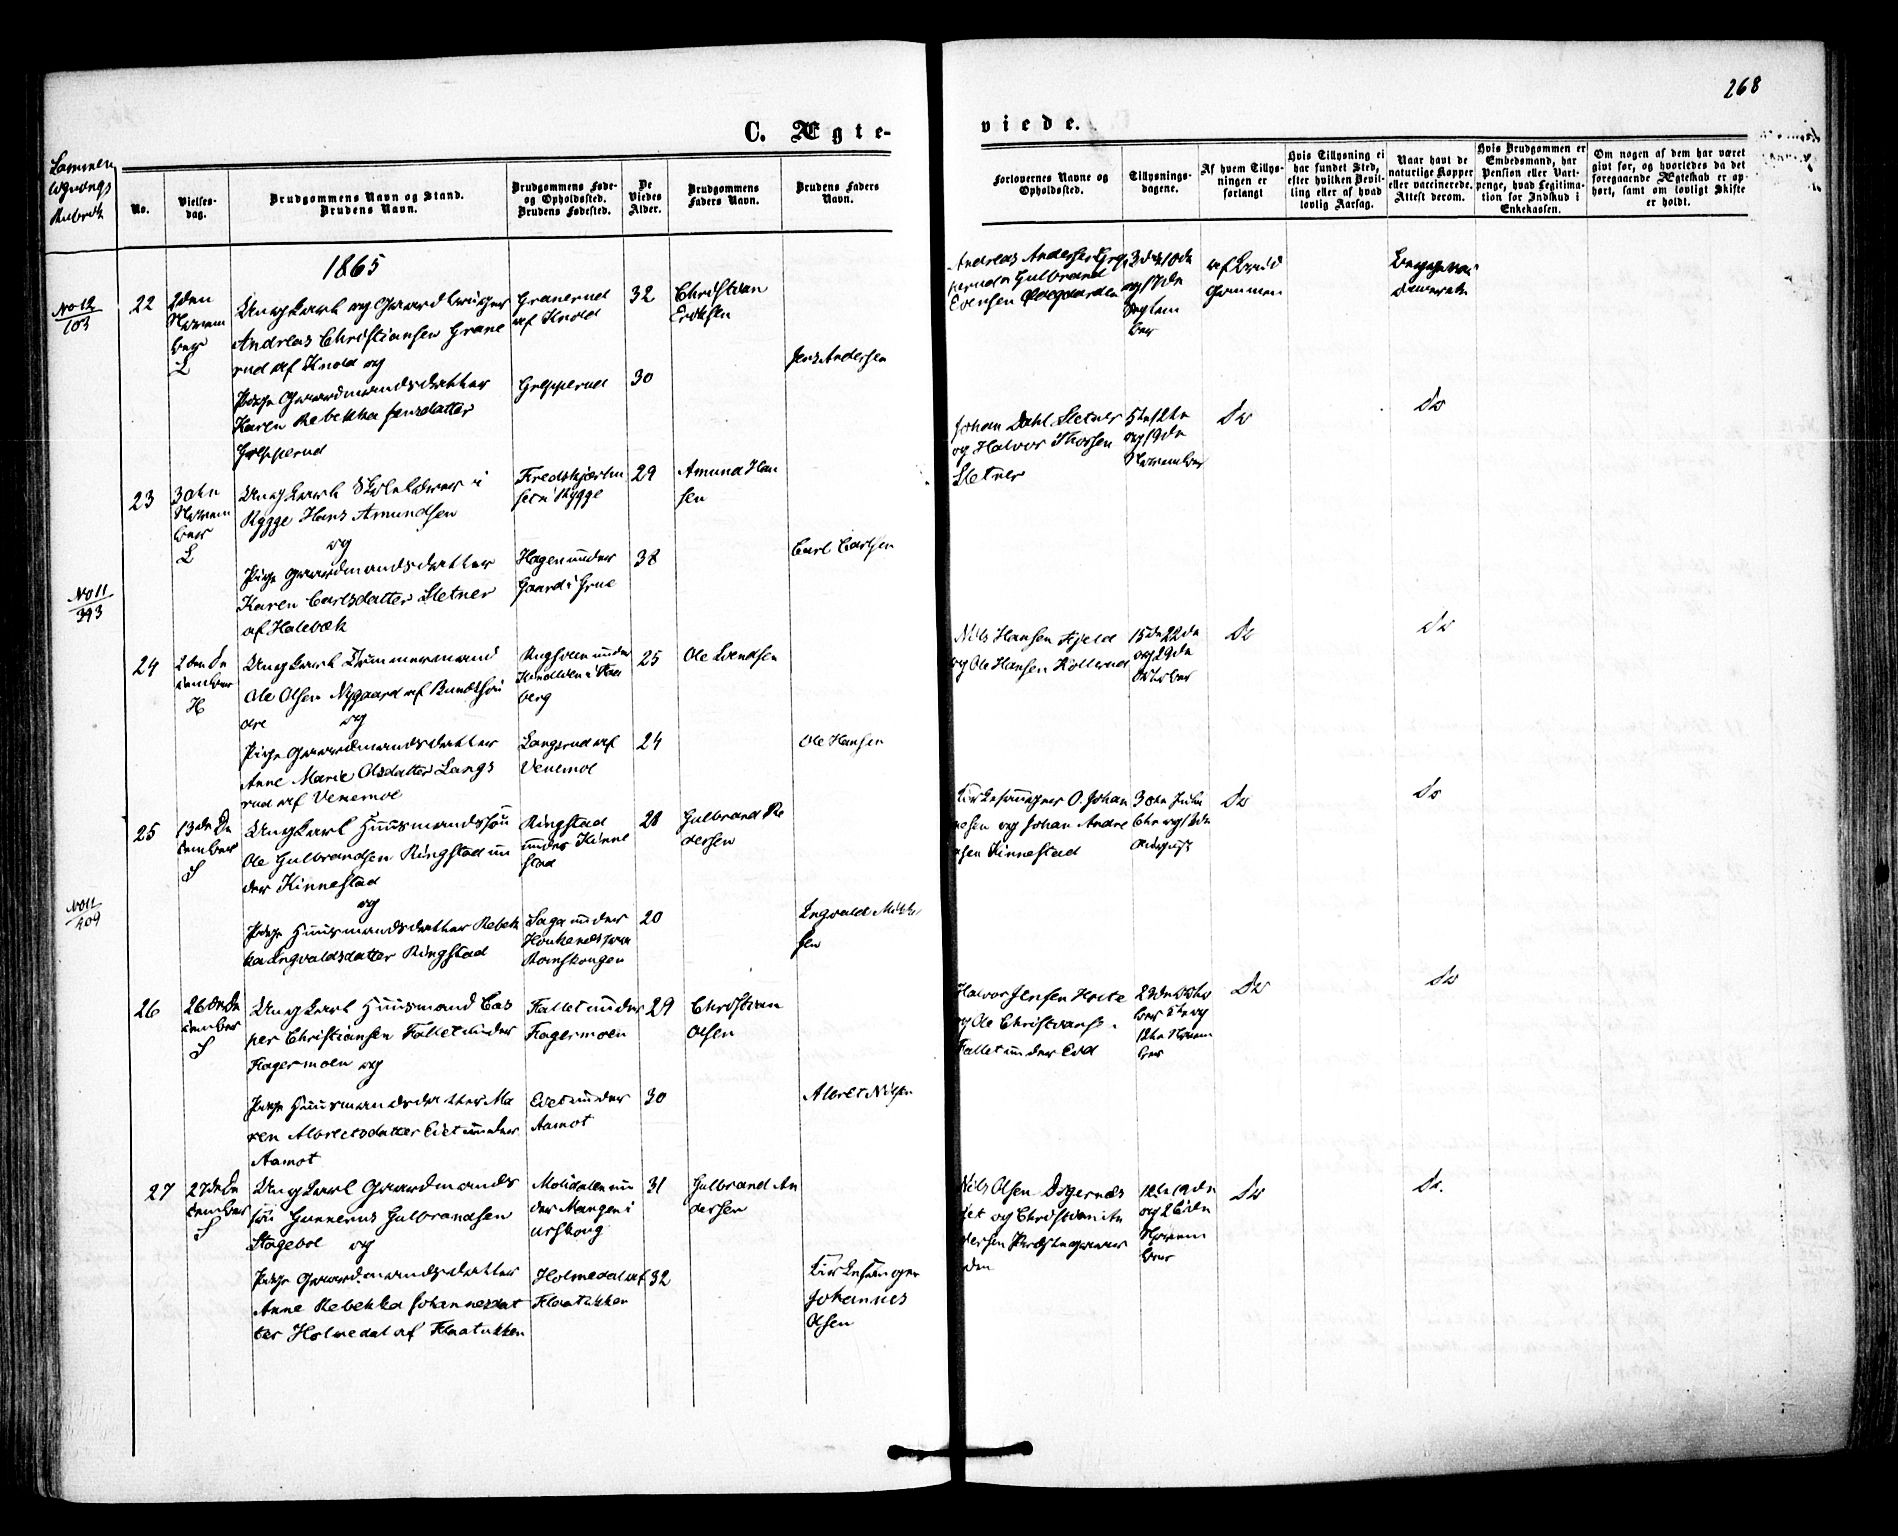 268
C. Ægte-
viede.
No.
Vielses-
dag.
Brudgommens Navn og Stand.
Brudens Navn.
Brudgommens Føde-
og Opholdssted.
Brudens Fødested.
De
Viedes
Alder.
Brudgommens
Faders Navn.
Brudens Faders
Navn.
Forlovernes Navne og
Opholdssted.
Tillysnings-
dagene.
Af hvem Tillys-
ningen er
forlangt
Hvis Tillysning ei
har fundet Sted,
efter hvilken Bevil-
ling eller af hvad
lovlig Aarsag.
Naar havt de
naturlige Kopper
eller vaccinerede.
Attest derom.
Hvis Brudgommen er
Embedsmand, har
Pension eller Vart-
penge, hvad Legitima-
tion for Indskud i
Enkekassen.
Om nogen af dem har været
gift før, og hvorledes da det
foregaaende Ægteskab er op-
hørt, samt om lovligt Skifte
er holdt.
1865
No 12
103
22
2den
Novem
ber
L
Ungkarl og Gaardbruger
Andreas Christiansen Grane
rud af Knold og
Pige Gaardmandsdatter
Karen Rebekka Jensdatter
Grepperud
Granerud
af Knold
Grepperud
32
30
Christian
Eriksen
Jens Andersen
Andreas Andersen Grep
perud Gulbrand
Evensen Ødegaarden
3die 10de
og 17de
Septem
ber
af Brud
gommen
Begge vac
cinerede
23
30te
Novem
ber
L
Ungkarl Skolelærer i
Rygge Hans Amundsen
og
Pige Gaardmandsdatter
Karen Carlsdatter Sletner
af Halebæk
i Rygge
Hagen under
Gaard i Grue
29
38
Amund Han
sen
Carl Carlsen
Johan Dahl Sletner
og Halvor Thorsen
Sletner
5te 12te
og 19de
November
Do
Do
No 11
393
24
2den De
cember
H
Ungkarl Tømmermand
Ole Olsen Nygaard af Bundtsøn
dre og
Pige Gaardmandsdatter
Anne Marie Olsdatter Langs
rud af Venemoe
berg
Langsrud af
Venemoe
25
24
Ole Svendsen
Ole Hansen
Nils Hansen Fjeld
og Ole Hansen Kollerud
15de 22de
og 29de
October
Do
Do
25
13de De
cember
S
Ungkarl Huusmandssøn
Ole Gulbrandsen Ringstad un
der Kinnestad
og
Pige Huusmandsdatter Rebek
ka Engvaldsdatter Ringstad
Ringstad
under Kinne
stad
Saga under
Romskougen
28
20
Gulbrand Pe
dersen
Engvald Mikkel
sen
Kirkesanger O. Johan
nesen og Johan Andre
asen Kinnestad
30te Juli
6te og 13de
August
Do
Do
No 11
409
26
26de De
cember
S
Ungkarl Huusmand Cas
per Christiansen Fallet under
Hagermoen og
Pige Huusmandsdatter Ma
ren Albretsdatter Eiet under
Aamot
Fallet under
Hagermoen
Eiet under
Aamot
29
30
Christian
Olsen
Albret Nilsen
Halvor Jensen
og Ole Christians.
Fallet under Eid
12te Novem
ber
Do
Do
27
27de De
cember
S
Ungkarl Gaardmands
søn Gunnerus Gulbrandsen
Stagebol og
Pige Gaardmandsdatter
Anne Rebekka Johannesdat
ter Holmedal af Flaatukken
Molidalen un
der Mangen i
Urskoug
Holmedal af
Flaatukken
31
32
Gulbrand An
dersen
Kirkesanger
Johannes
Olsen
Nils Olsen Dogernæs
et og Christian An
dersen Præstegaar
den
12te 19de
og 26de
Novem
ber
Do
Do.